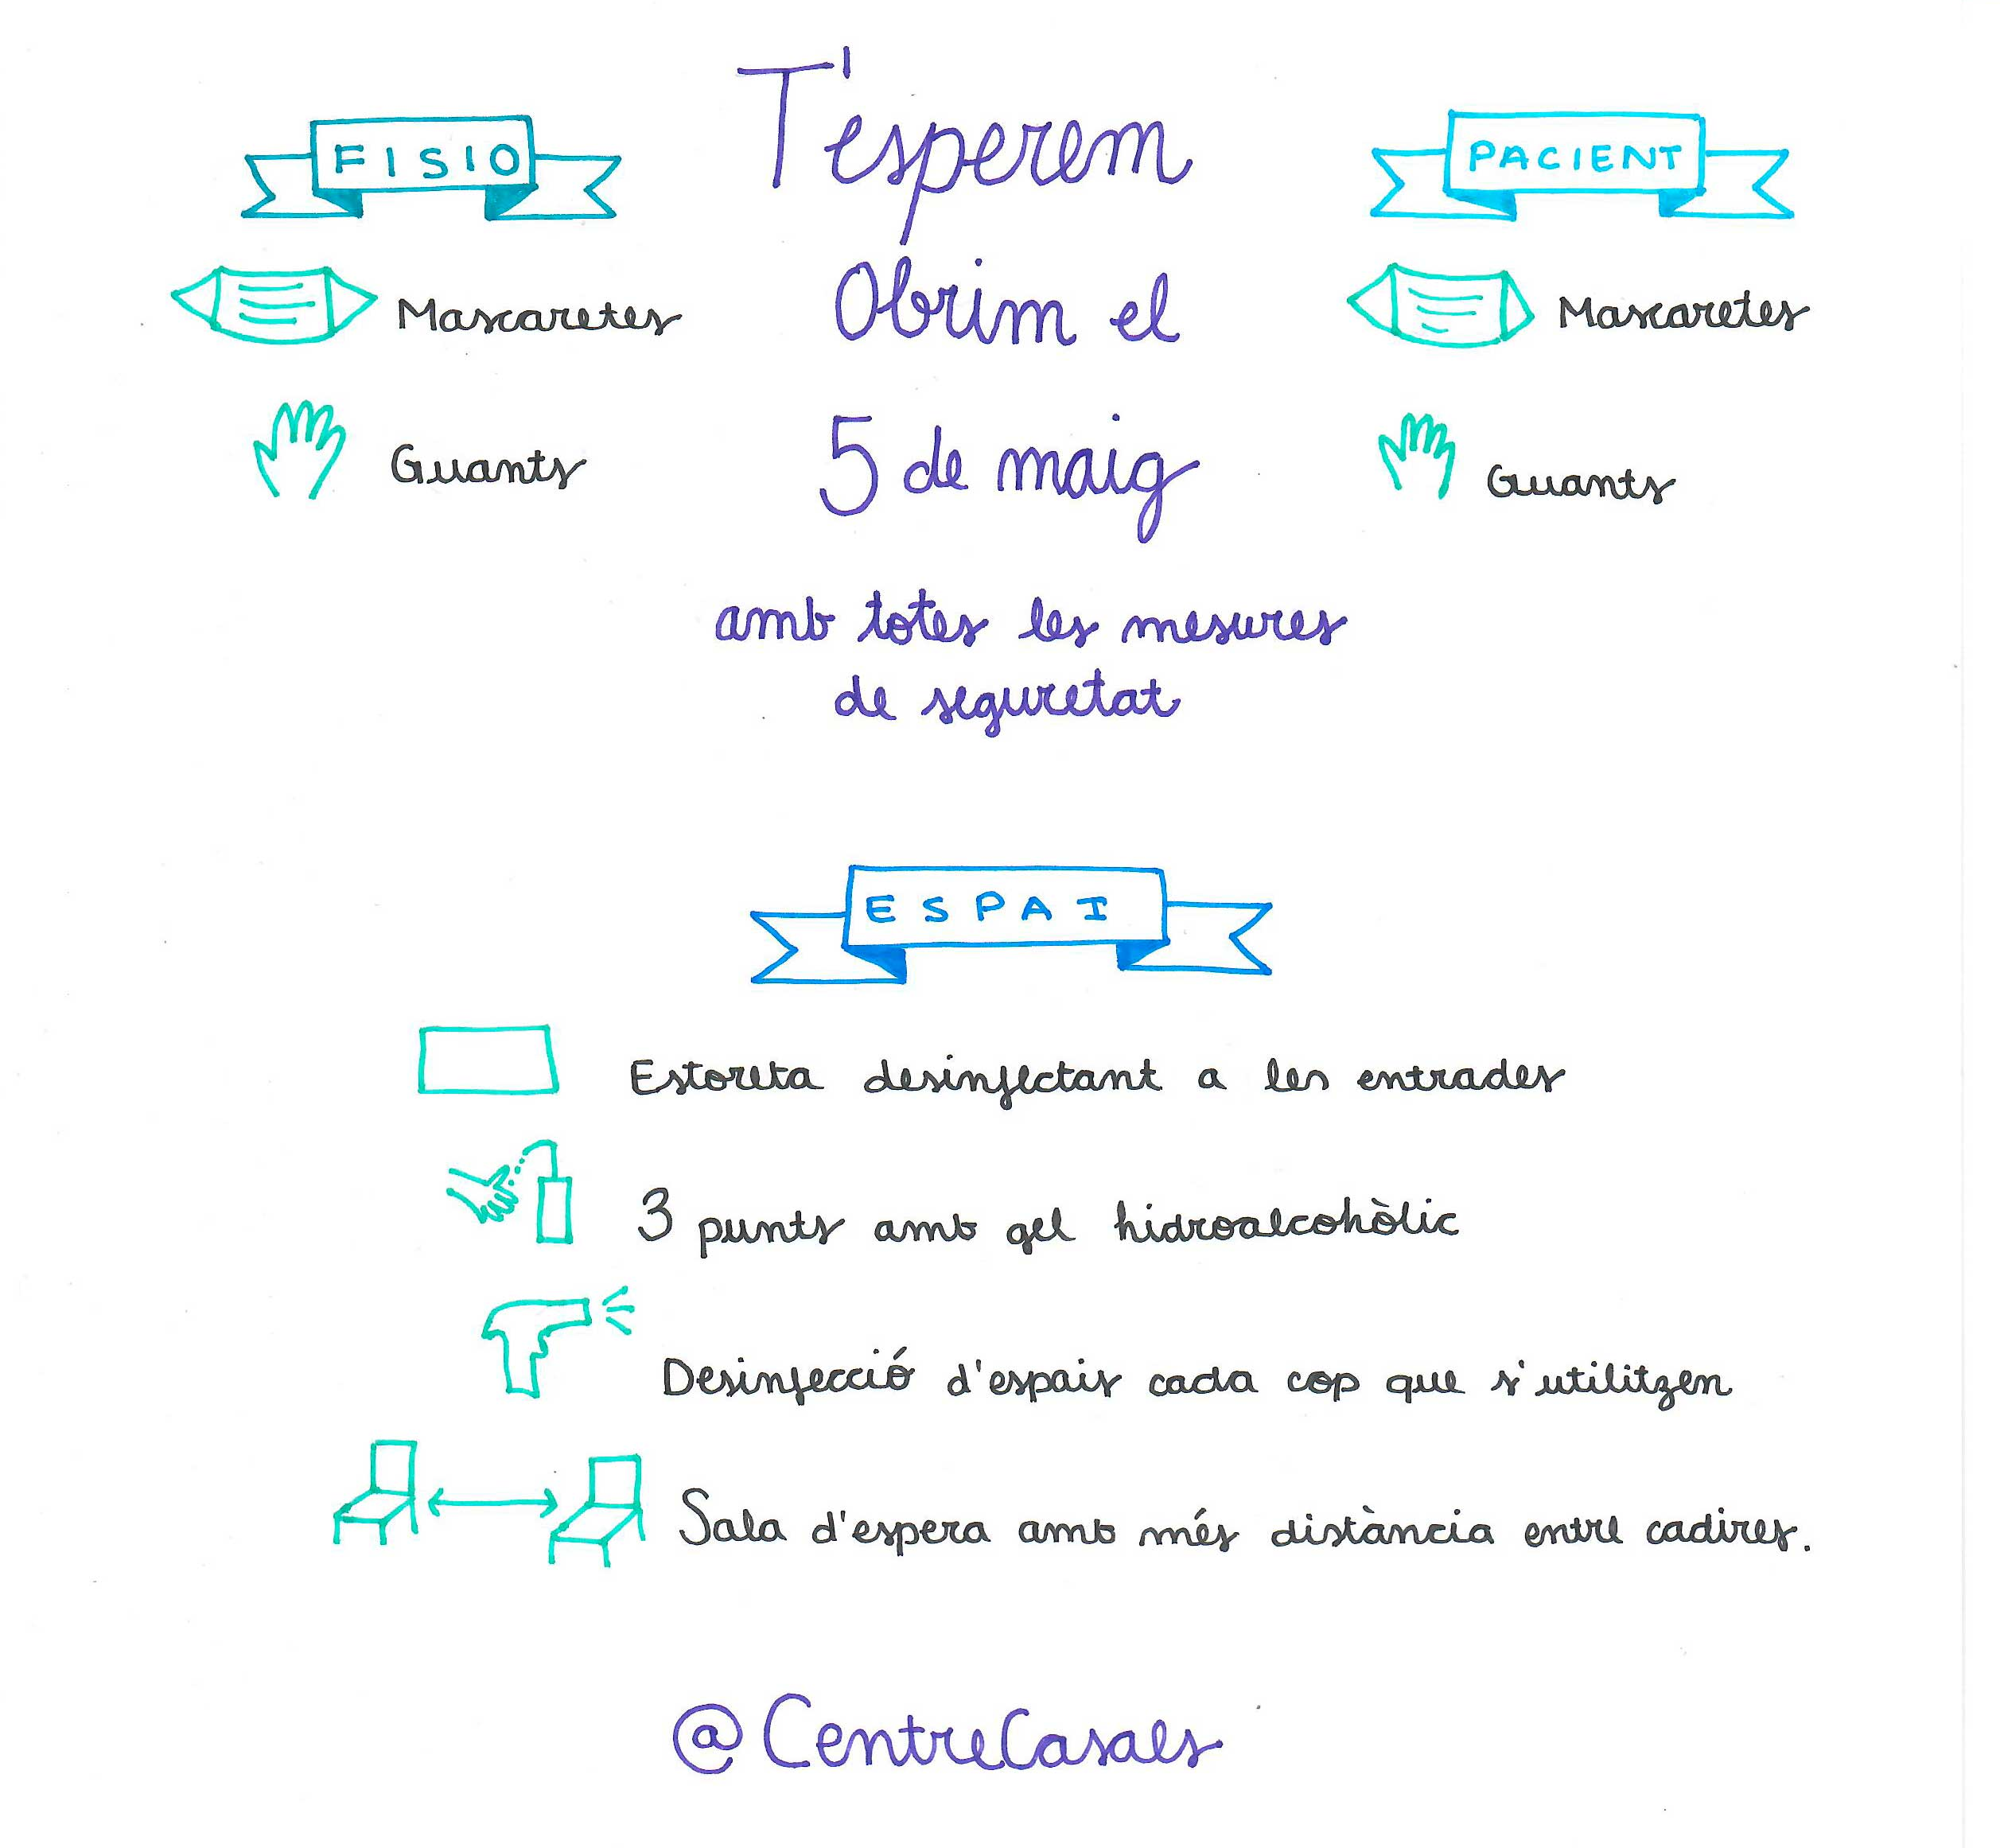 T'esperem
Obrim el
5 de maig
amb totes les mesures
de seguretat
FISIO
Mascaretes
Guants
PACIENT
Mascaretes
Guants
ESPAI
Estoreta desinfectant a les entrades
3 punts amb gel hidroalcohòlic
Desinfecció d'espais cada cop que s'utilitzen
Sala d'espera amb més distància entre cadires.
@CentreCasals